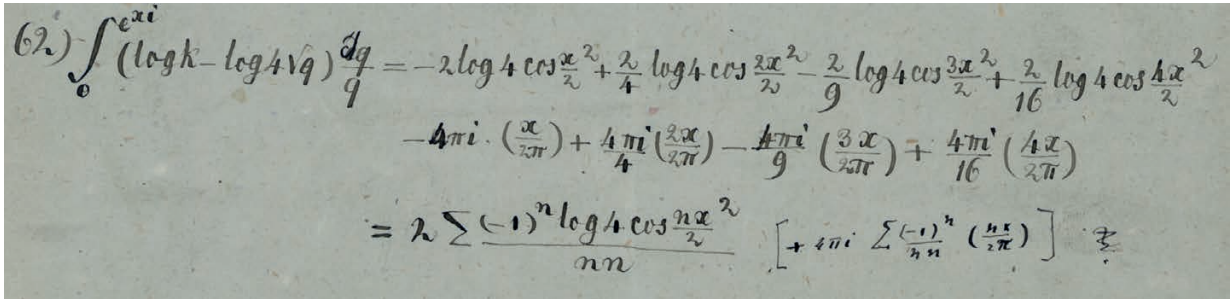 (62) ∫₀^{e^{xi}} (log k − log 4√q) dq/q = −2 log 4 cos x/2 ² + 2/4 log 4 cos 2x/2 ² − 2/9 log 4 cos 3x/2 ² + 2/16 log 4 cos 4x/2 ²
− 4πi · (x/2π) + 4πi/4 (2x/2π) − 4πi/9 (3x/2π) + 4πi/16 (4x/2π)
= 2 Σ (−1)ⁿ log 4 cos nx/2 ² / nn [+ 4πi Σ (−1)ⁿ/nn (nx/2π)]